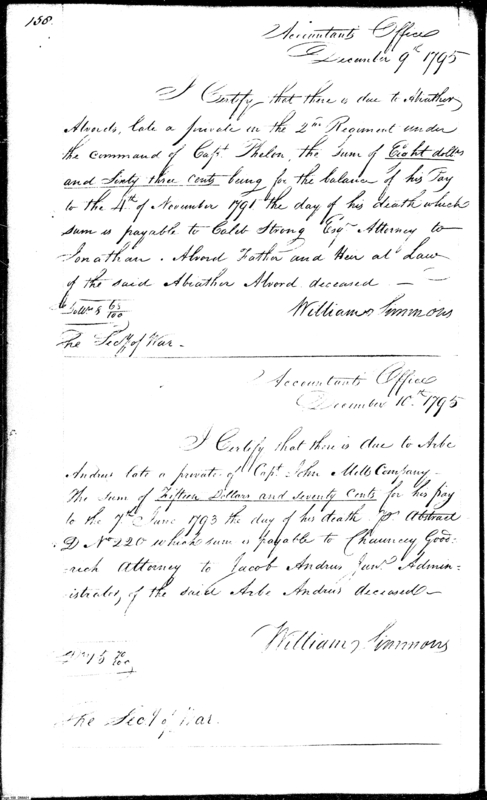 158.
Accountants Office
December 9th 1795
I Certify that there is due to Abiather
Alvord, late a private in the 2nd Regiment under
the command of Capt Phelon, the sum of Eight dollars
and Sixty three cents being for the balance of his Pay
to the 4th of November 1791 the day of his death which
sum is payable to Caleb Strong Esqr Attorney to
Jonathan Alvord Father and Heir at Law
of the said Abiather Alvord deceased —
Dollrs 8 63/100
William Simmons
The Secy of War.
Accountants Office
December 10th 1795
I Certify that there is due to Arbe
Andrus late a private of Capt John Mills Company
the sum of Fifteen Dollars and seventy Cents for his pay
to the 7th June 1793 the day of his death pr Abstract
D No 220 which sum is payable to Chauncey Good-
rich Attorney to Jacob Andrus Junr Admin-
istrator, of the said Arbe Andrus deceased —
William Simmons
15 70/100
The Secy of War.